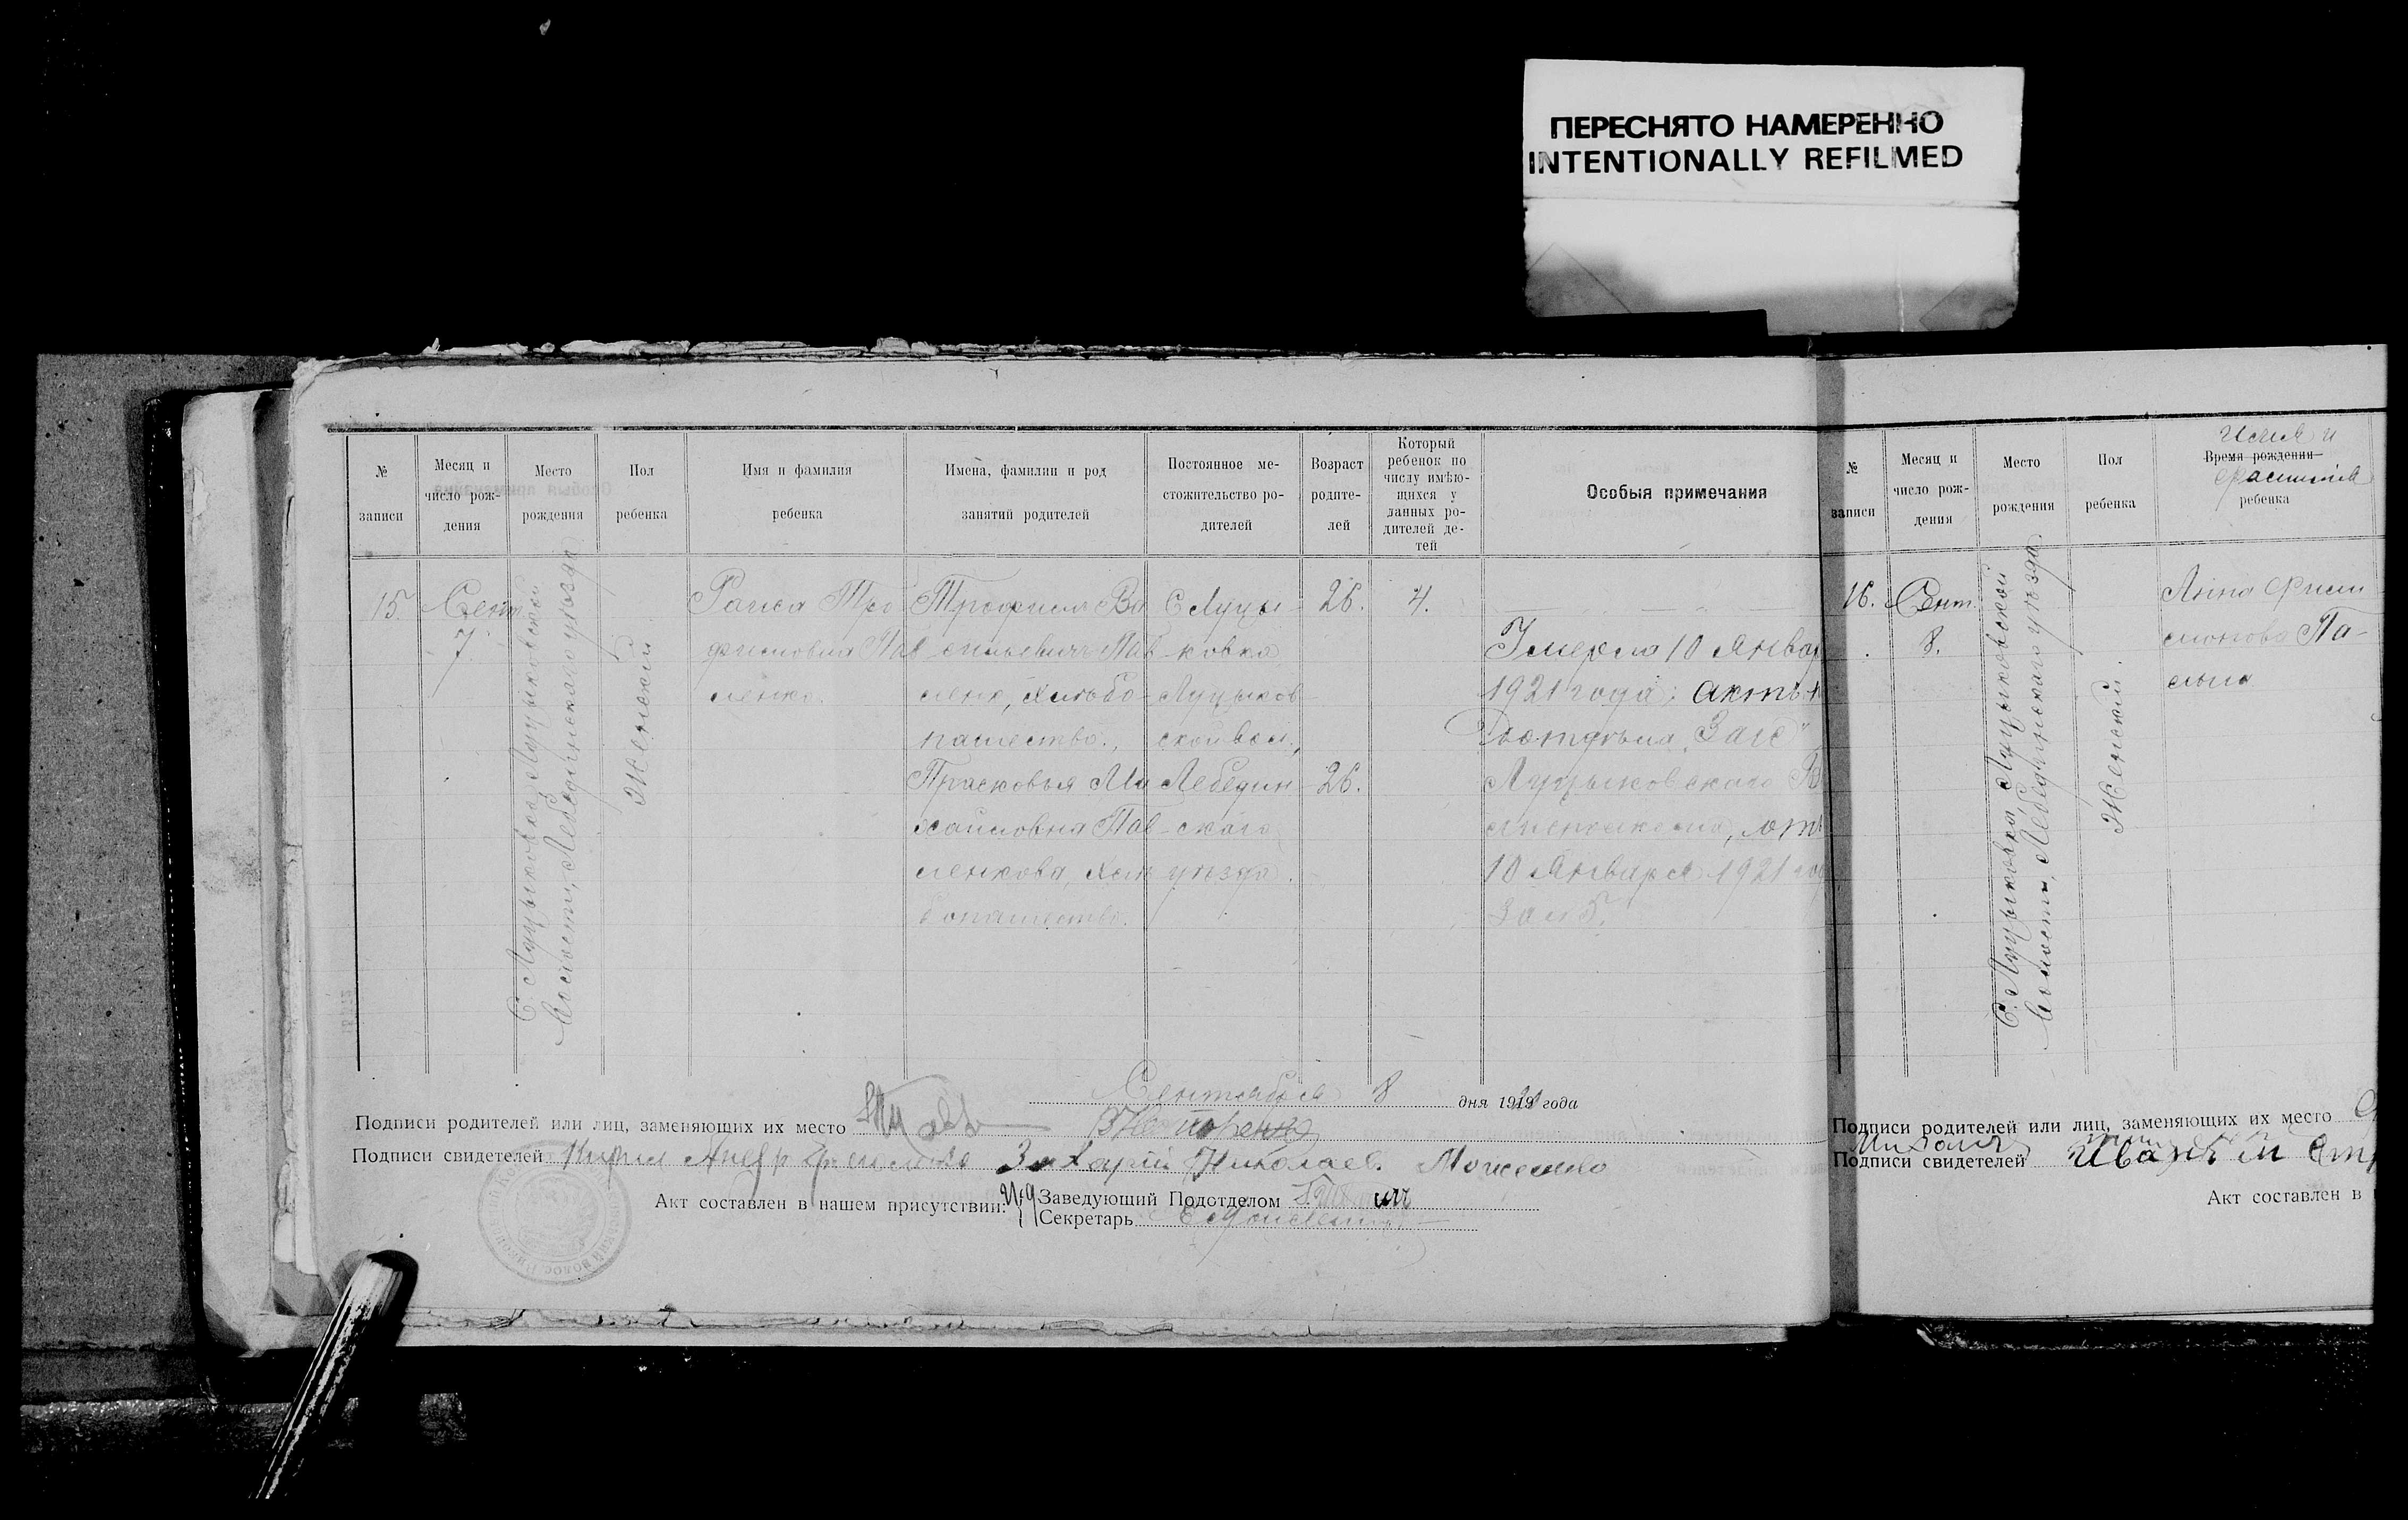 ПЕРЕСНЯТО НАМЕРЕННО
INTENTIONALLY REFILMED
№ записи
Месяц и число рождения
Место рождения
Пол ребенка
Имя и фамилия ребенка
Имена, фамилии и род занятий родителей
Постоянное местожительство родителей
Возраст родителей
Который ребенок по числу имѣющихся у данных родителей детей
Особыя примечания
15.
Сент.
7
С. Луцыковка, Луцыковской
Волости, Лебединскаго уѣзда
Женский
Раиса Тро
фимовна Пав
ленко.
Трофим Ва
сильевич Пав
ленко, хлѣбо-
пашество.,
Прасковья Ми
хайловна Пав-
ленкова, хлѣ
бопашество.
С Луцы-
ковка
Луцыков-
ской вол.,
Лебедин-
скаго
уѣзда.
26.
26.
4.
Умерла 10 Январ
1921 года: актъ
Загс"
Луцыковскаго В
от
10 Января 1921 год
за № 5.
Сентября 8 дня 1919 года
Подписи родителей или лиц, заменяющих их место
Подписи свидетелей Кирил Захарій Николаев.
Акт составлен в нашем присутствии:
Заведующий Подотделом
Секретарь
№ записи
Месяц и число рождения
Место рождения
Пол ребенка
Имя и
Время рождения
фамилия
ребенка
16.
Сент.
8.
С. Луцыковка Луцыковской
Волости, Лебединскаго уѣзда
Женский.
Анна Фили
моновна Па-
Подписи родителей или лиц, заменяющих их место
Подписи свидетелей Иван М
Акт составлен в